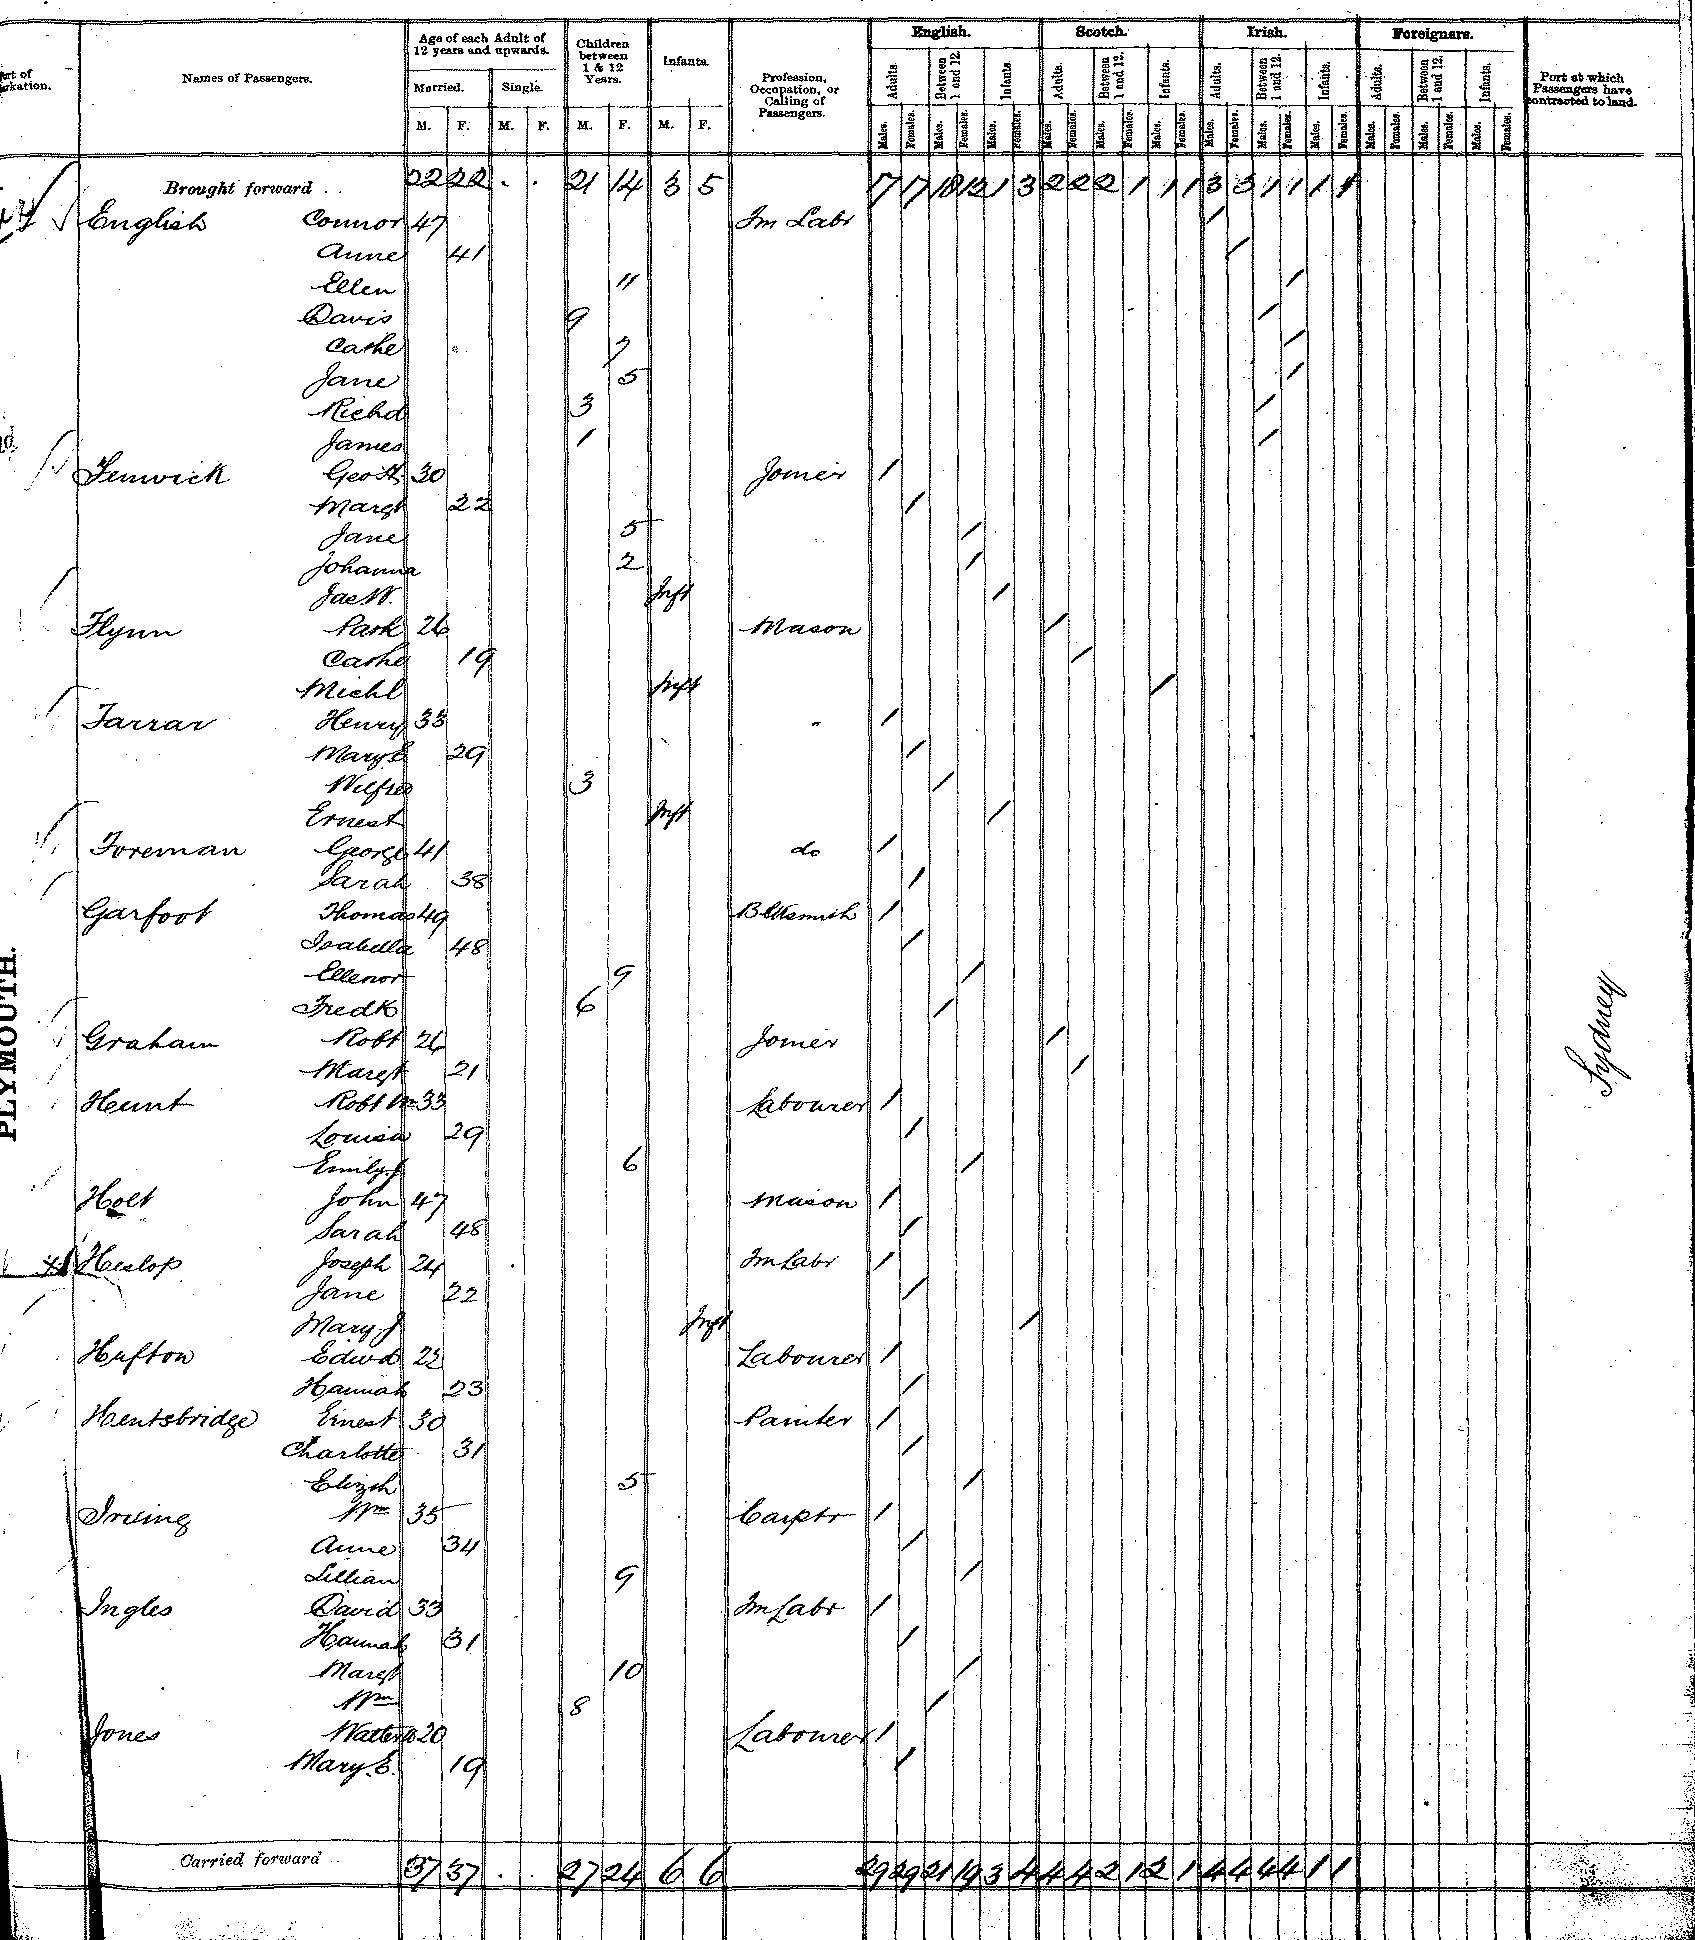 Port of Embarkation.
Names of Passengers.
Age of each Adult of 12 years and upwards.
Married. Single.
Children between 1 & 12 Years.
Infants.
Profession, Occupation, or Calling of Passengers.
English. Scotch. Irish. Foreigners.
Adults. Between 1 and 12. Infants. Adults. Between 1 and 12. Infants. Adults. Between 1 and 12. Infants. Adults. Between 1 and 12. Infants.
Port at which Passengers have contracted to land.
M. F. M. F. M. F. M. F. Males. Females. Males. Females. Males. Females. Males. Females. Males. Females. Males. Females. Males. Females. Males. Females. Males. Females. Males. Females. Males. Females. Males. Females.
Brought forward .. 22 22 . . 21 14 3 5 2 2 2 1 1 1 3 3 1 1 1 1
English Connor 47 Fm Labr /
Anne 41 /
Ellen 11 /
Davis 9 /
Cathe 7 /
Jane 5 /
Richd 3 /
James 1 /
Fenwick Geo H. 30 Joiner /
Margt 22 /
Jane 5 /
Johanna 2 /
Jas W. Inft /
Flynn Patk 26 Mason /
Cathe 19 /
Michl Inft /
Farrar Henry 33 " /
Mary E 29 /
Wilfred 3 /
Ernest Inft /
Foreman George 41 do /
Sarah 38 /
Garfoot Thomas 49 Blksmith /
Isabella 48 /
Ellenor 9 /
Fredk 6 /
Graham Robt 26 Joiner /
Margt 21 /
Hunt Robt Wm 33 Labourer /
Louisa 29 /
Emily J 6 /
Holt John 47 Mason /
Sarah 48 /
Heslop Joseph 24 Fm Labr /
Jane 22 /
Mary J Inft /
Hufton Edwd 22 Labourer /
Hannah 23 /
Huntsbridge Ernest 30 Painter /
Charlotte 31 /
Elizth 5 /
Irving Wm 35 Carptr /
Anne 34 /
Lillian 9 /
Ingles David 33 Fm Labr /
Hannah 31 /
Margt 10 /
Wm 8 /
Jones 20 Labourer /
Mary E. 19 /
Carried forward .. 37 37 . . 27 24 6 6 29 29 21 19 3 4 4 4 2 1 2 1 4 4 4 4 1 1
PLYMOUTH.
Sydney